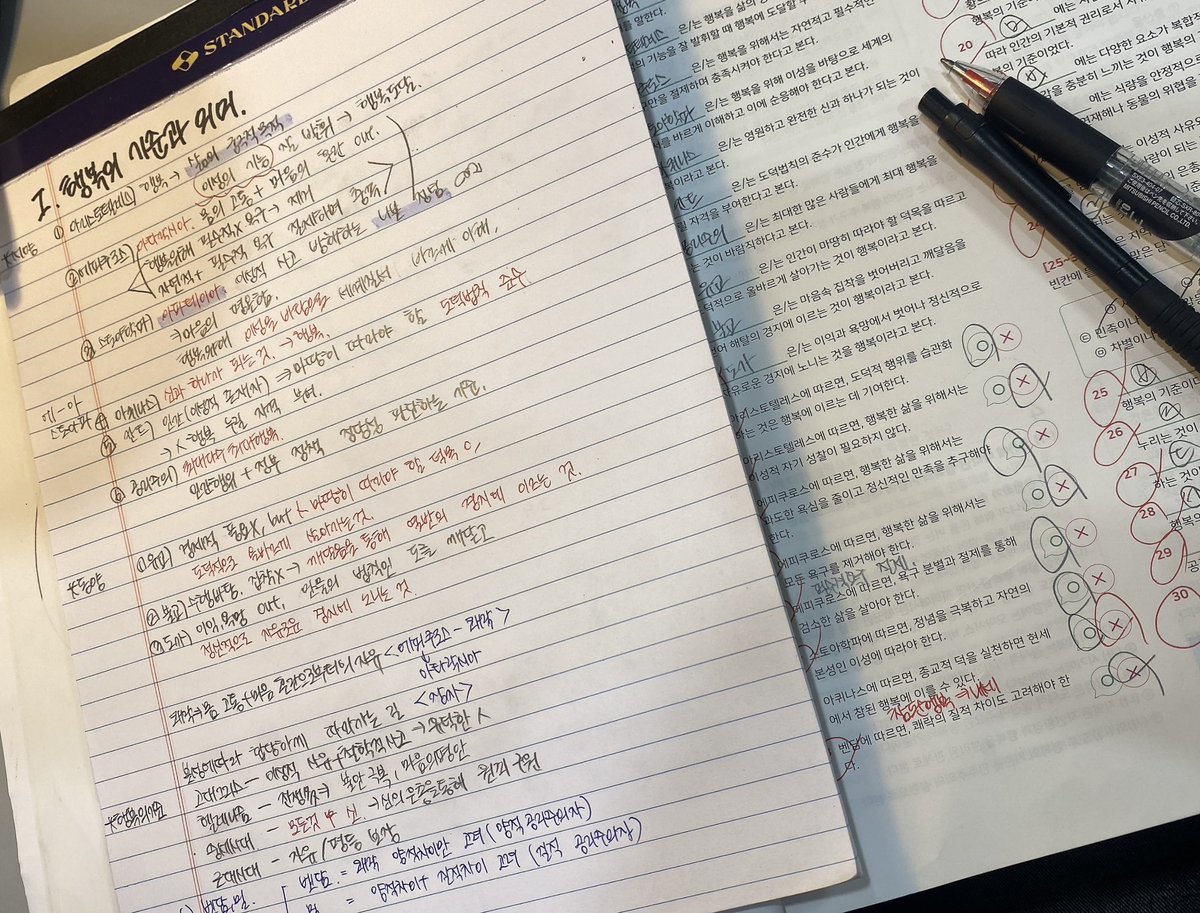 STANDARD
I. 행복의 기준과 의미.
*서양
① 아리스토텔레스) 행복 → 삶의 궁극적 목적
이성의 기능 잘 발휘 → 행복 도달.
② 에피쿠로스) 아타락시아. 몸의 고통 + 마음의 불안 out.
행복위해 필수적X 욕구 → 제거
자연적 + 필수적 욕구 절제하며 충족
③ 스토아학파) 아파테이아 이성적 사고 방해하는 나쁜 정념
→ 마음의 평온함.
행복위해 이성을 바탕으로 세계질서 바르게 이해,
④ 아퀴나스) 신과 하나가 되는 것. → 행복.
⑤ 칸트) 인간(이성적 존재자) → 마땅히 따라야 할 도덕법칙 준수
→ 人 행복 누릴 자격 부여.
⑥ 공리주의) 최대다수 최대행복.
인간행위 + 정부 정책 정당성 판단하는 기준.
*동양
① 유교) 경제적 풍요X, but 人 마땅히 따라야 할 덕목 이
도덕적으로 올바르게 살아가는 것
② 불교) 수행바탕, 집착X → 깨달음을 통해 열반의 경지에 이르는 것.
③ 도가) 이익, 욕망 out, 만물의 법칙인 도를 깨닫고
정신적으로 자유로운 경지에 노니는 것
쾌락 → 몸 고통 + 마음 혼란으로부터의 자유 <에피쿠로스 - 쾌락>
아타락시아
본성에 따라 합당하게 따라가는 길 <장자>
*행복의 기준
고대그리스 - 이성적 사유 + 철학적 사고 → 유덕한 人
헬레니즘 - 전쟁 많 → 불안 극복, 마음의 평안
중세시대 - 모든 것 다 신. → 신의 은총을 통해 구원
근대시대 - 자유/평등 보장
벤담·밀.
벤담 : = 쾌락 양적차이만 고려 (양적 공리주의자)
밀 = 양적차이 + 질적차이 고려 (질적 공리주의자)
은/는 행복을 삶의
를 말한다.
의 기능을 잘 발휘할 때 행복에 도달할
은/는 행복을 위해서는 자연적이고 필수적인
구만을 절제하며 충족시켜야 한다고 본다.
은/는 행복을 위해 이성을 바탕으로 세계의
서를 바르게 이해하고 이에 순응해야 한다고 본다.
은/는 영원하고 완전한 신과 하나가 되는 것이
복이라고 본다.
은/는 도덕법칙의 준수가 인간에게 행복을
자격을 부여한다고 본다.
은/는 최대한 많은 사람들에게 최대 행복을
는 것이 바람직하다고 본다.
은/는 인간이 마땅히 따라야 할 덕목을 따르고
덕적으로 올바르게 살아가는 것이 행복이라고 본다.
은/는 마음속 집착을 벗어버리고 깨달음을
어 해탈의 경지에 이르는 것이 행복이라고 본다.
은/는 이익과 욕망에서 벗어나 정신적으로
유로운 경지에 노니는 것을 행복이라고 본다.
아리스토텔레스에 따르면, 도덕적 행위를 습관화
하는 것은 행복에 이르는 데 기여한다.
아리스토텔레스에 따르면, 행복한 삶을 위해서는
이성적 자기 성찰이 필요하지 않다.
에피쿠로스에 따르면, 행복한 삶을 위해서는
과도한 욕심을 줄이고 정신적인 만족을 추구해야
한다.
에피쿠로스에 따르면, 행복한 삶을 위해서는
모든 욕구를 제거해야 한다.
에피쿠로스에 따르면, 욕구 분별과 절제를 통해
검소한 삶을 살아야 한다.
스토아학파에 따르면, 정념을 극복하고 자연의
본성인 이성에 따라야 한다.
아퀴나스에 따르면, 종교적 덕을 실천하면 현세
에서 참된 행복에 이를 수 있다.
벤담에 따르면, 쾌락의 질적 차이도 고려해야 한
다.
행복의 기준
20
에는 시
따라 인간의 기본적 권리로서 자
복의 기준이었다.
에는 다양한 요소가 복합적
을 충분히 느끼는 것이 행복의
에는 식량을 안정적으로
연재해나 동물의 위협을
이성적 사유와
사람이 되는
[25~
빈칸에
ⓒ 민족이나
25
행복의 기준이
26
누리는 것이
27
하는 것이
28
29
30
MITSUBISHI PENCIL CO.,LTD.